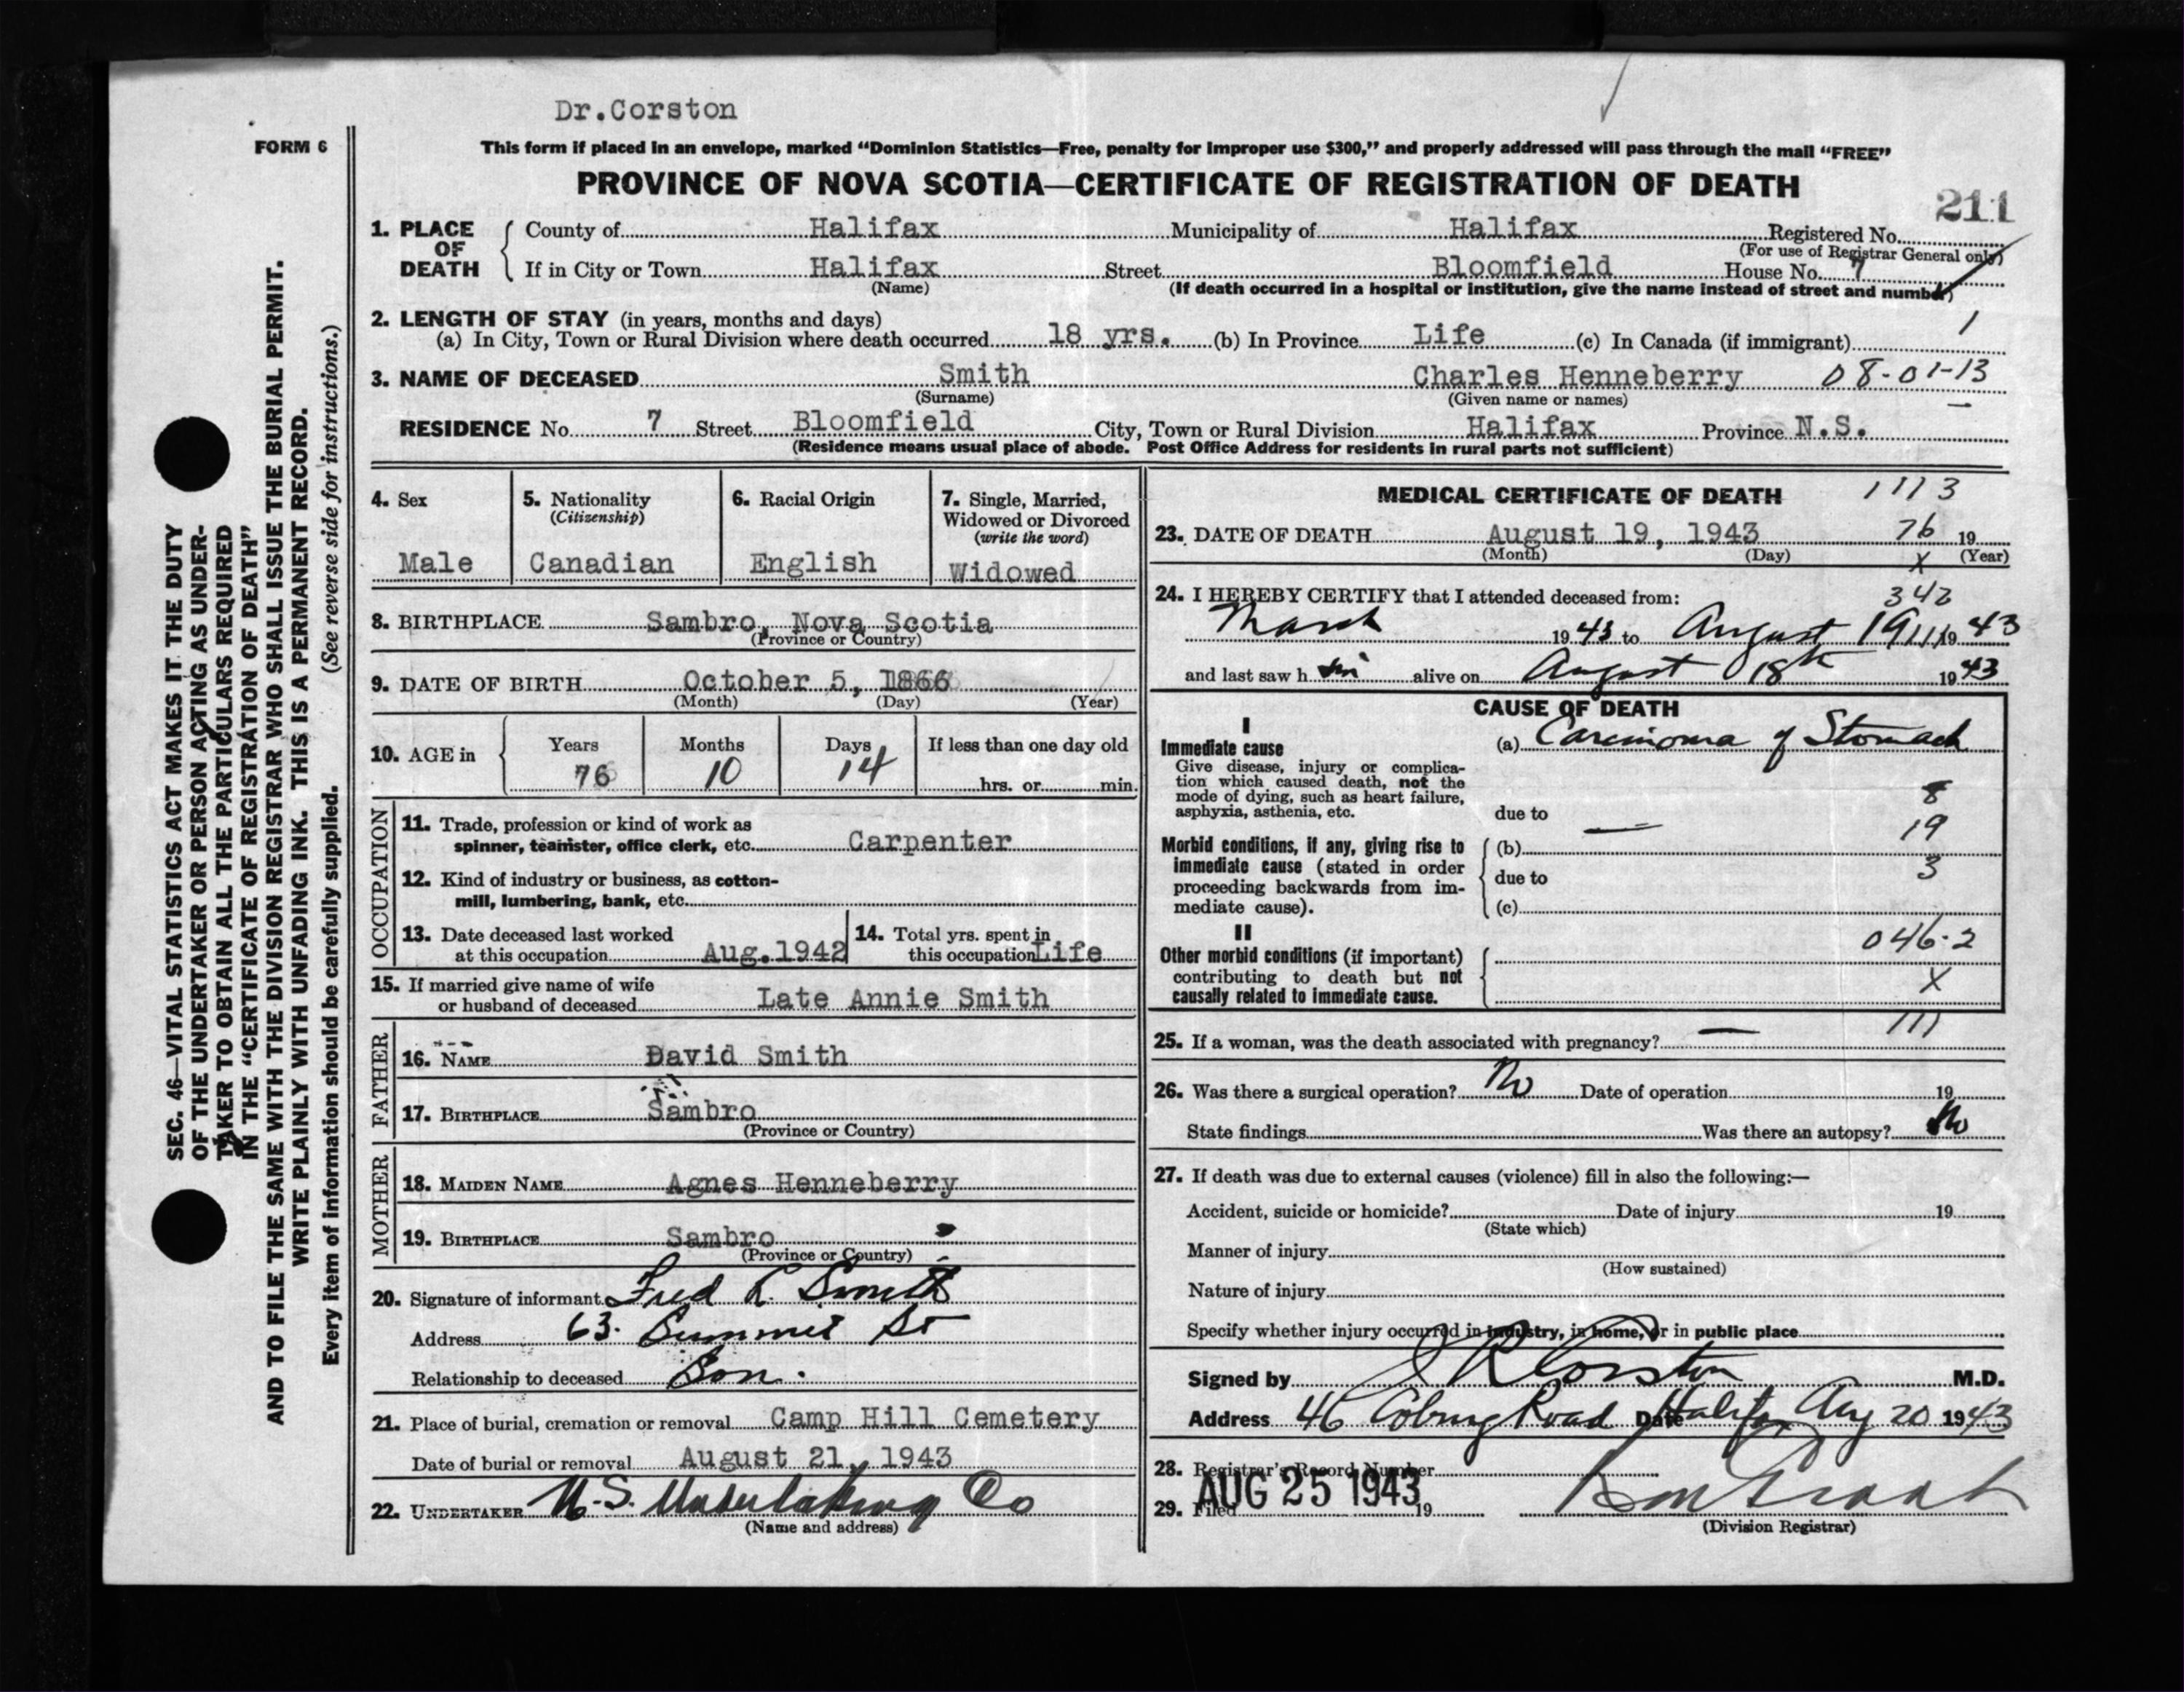 Dr.Corston
FORM 6
This form if placed in an envelope, marked “Dominion Statistics—Free, penalty for improper use $300,” and properly addressed will pass through the mail “FREE”
PROVINCE OF NOVA SCOTIA—CERTIFICATE OF REGISTRATION OF DEATH
211
1. PLACE OF DEATH
County of Halifax Municipality of Halifax Registered No.
(For use of Registrar General only)
If in City or Town Halifax Street Bloomfield House No. 7
(Name) (If death occurred in a hospital or institution, give the name instead of street and number)
2. LENGTH OF STAY (in years, months and days)
(a) In City, Town or Rural Division where death occurred 18 yrs. (b) In Province Life (c) In Canada (if immigrant) 1
3. NAME OF DECEASED Smith Charles Henneberry 08-01-13
(Surname) (Given name or names)
RESIDENCE No. 7 Street Bloomfield City, Town or Rural Division Halifax Province N.S.
(Residence means usual place of abode. Post Office Address for residents in rural parts not sufficient)
4. Sex
Male
5. Nationality
(Citizenship)
Canadian
6. Racial Origin
English
7. Single, Married,
Widowed or Divorced
(write the word)
Widowed
8. BIRTHPLACE Sambro, Nova Scotia
(Province or Country)
9. DATE OF BIRTH October 5, 1866
(Month) (Day) (Year)
10. AGE in
Years Months Days If less than one day old
76 10 14 hrs. or min.
OCCUPATION
11. Trade, profession or kind of work as
spinner, teamster, office clerk, etc. Carpenter
12. Kind of industry or business, as cotton-
mill, lumbering, bank, etc.
13. Date deceased last worked
at this occupation Aug.1942
14. Total yrs. spent in
this occupation Life
15. If married give name of wife
or husband of deceased Late Annie Smith
FATHER
16. NAME David Smith
17. BIRTHPLACE Sambro
(Province or Country)
MOTHER
18. MAIDEN NAME Agnes Henneberry
19. BIRTHPLACE Sambro
(Province or Country)
20. Signature of informant Fred L. Smith
Address 63. Summit St
Relationship to deceased Son.
21. Place of burial, cremation or removal Camp Hill Cemetery
Date of burial or removal August 21, 1943
22. UNDERTAKER N.S. Undertaking Co
(Name and address)
MEDICAL CERTIFICATE OF DEATH 1113
23. DATE OF DEATH August 19, 1943 76 19
(Month) (Day) X (Year)
24. I HEREBY CERTIFY that I attended deceased from: 342
March 1943 to August 19 1943
and last saw h im alive on August 18th 1943
CAUSE OF DEATH
I
Immediate cause (a) Carcinoma of Stomach
Give disease, injury or complica-
tion which caused death, not the
mode of dying, such as heart failure,
asphyxia, asthenia, etc.
8
due to
19
Morbid conditions, if any, giving rise to
immediate cause (stated in order
proceeding backwards from im-
mediate cause).
(b)
due to 3
(c)
II
046·2
Other morbid conditions (if important)
contributing to death but not
causally related to immediate cause.
X
111
25. If a woman, was the death associated with pregnancy? —
26. Was there a surgical operation? No Date of operation 19
State findings Was there an autopsy? No
27. If death was due to external causes (violence) fill in also the following:—
Accident, suicide or homicide? Date of injury 19
(State which)
Manner of injury
(How sustained)
Nature of injury
Specify whether injury occurred in industry, in home, or in public place
Signed by J R Corston M.D.
Address 46 Coburg Road Halifax Date Aug 20 1943
28. Registrar's Record Number
29. Filed AUG 25 1943 19
(Division Registrar)
SEC. 46—VITAL STATISTICS ACT MAKES IT THE DUTY
OF THE UNDERTAKER OR PERSON ACTING AS UNDER-
TAKER TO OBTAIN ALL THE PARTICULARS REQUIRED
IN THE “CERTIFICATE OF REGISTRATION OF DEATH”
AND TO FILE THE SAME WITH THE DIVISION REGISTRAR WHO SHALL ISSUE THE BURIAL PERMIT.
WRITE PLAINLY WITH UNFADING INK. THIS IS A PERMANENT RECORD.
Every item of information should be carefully supplied. (See reverse side for instructions.)